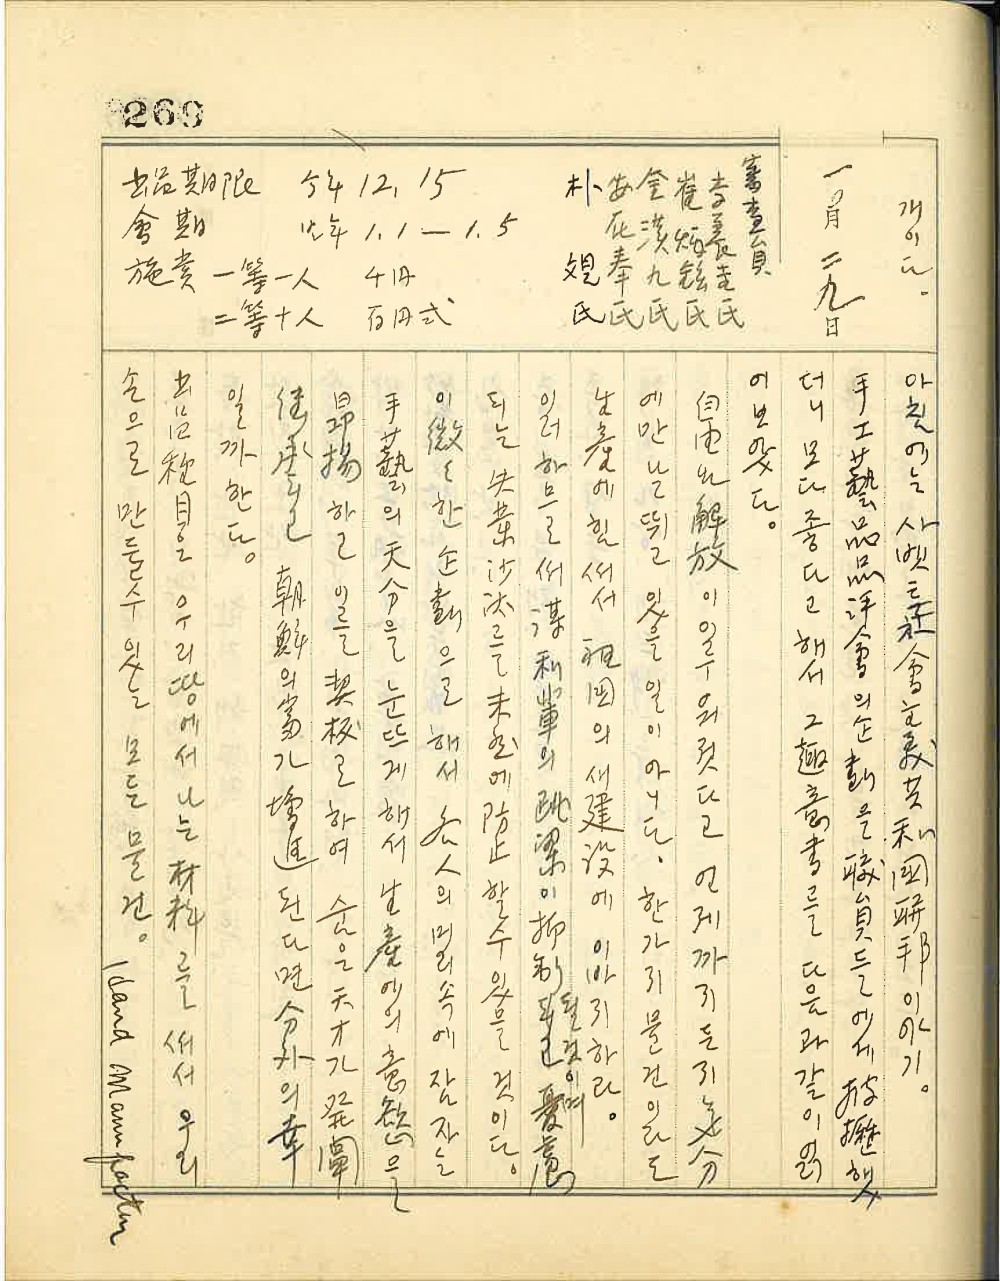 269
개이다.
一一月 二九日
審査員
李養吉氏
崔炳鉉氏
金漢九氏
安在奉氏
朴 焜 氏
出品期限 今年 12, 15
會期 來年 1.1—1.5
施賞 一等一人 千円
二等十人 百円式
아침에는 사벳트社會主義共和國聯邦이야기。
手工藝品品評會의企劃을 職員들에게 披攊햇
더니 모다 좋다고 해서 그趣意書를 다음과 같이 읽
어보았다。
自由와解放이 이루워젓다고 언제까지든지 氣分
에만 난뛰고 있을 일이 아니다. 한가지 물건이라도
生産에 힘써서 祖國의 새建設에 이바지하라。
일러 하므로써 謀利輩의 跳梁이 抑制될것이며 憂慮
되는 失業沙汰를 未然에 防止할수 있을 것이다。
이 微微한 企劃으로 해서 各人의 머리속에 잠자는
手藝의 天分을 눈뜨게 해서 生産에의 意慾을
昂揚하고 이를 契機로 하여 숨은 天才가 發闡
朝鮮의 富가 增進된다면 分外의 幸
일까 한다。
出品種目은 우리땅에서 나는 材料를 써서 우리
손으로 만들수 있는 모든 물건。
Hand Manufactur